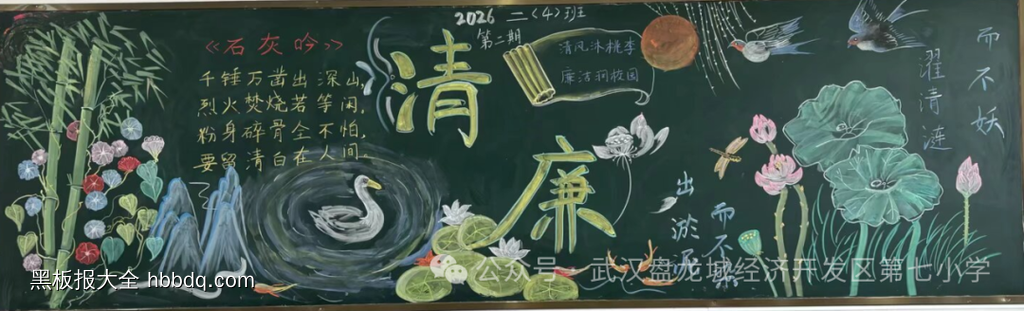 2026 二(4)班
第二期
《石灰吟》
千锤万凿出深山,
烈火焚烧若等闲,
粉身碎骨全不怕,
要留清白在人间
清廉
清风沐桃李
廉洁润校园
出淤泥
而不染
濯清涟
而不妖
黑板报大全 hbbdq.com
公众号 武汉盘龙城经济开发区第七小学